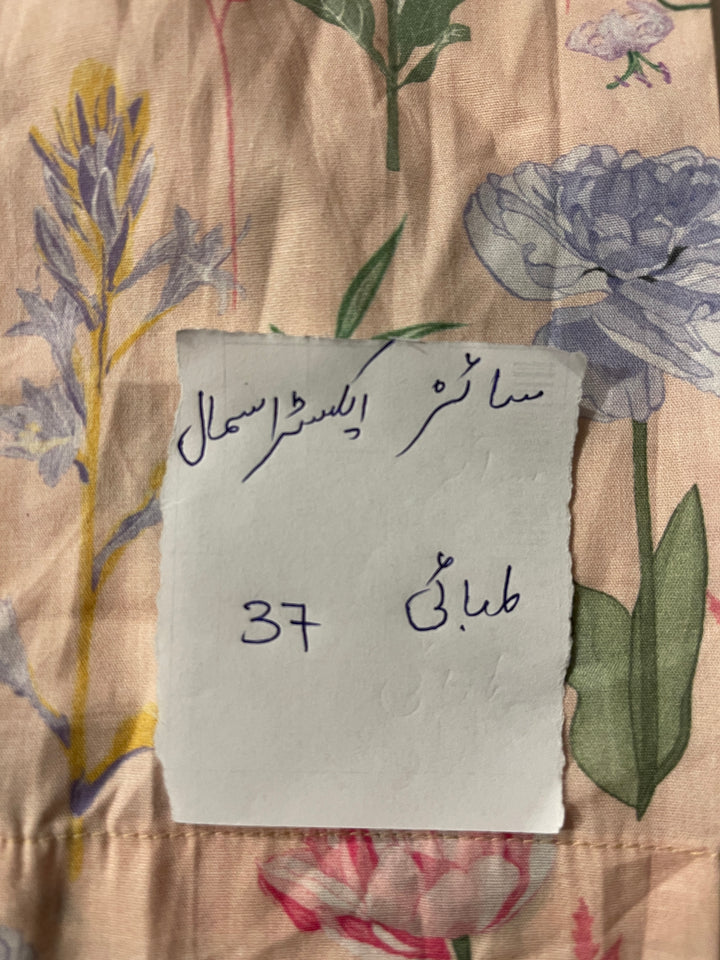 سائز ایکسٹرا سمال
لمبائی 37